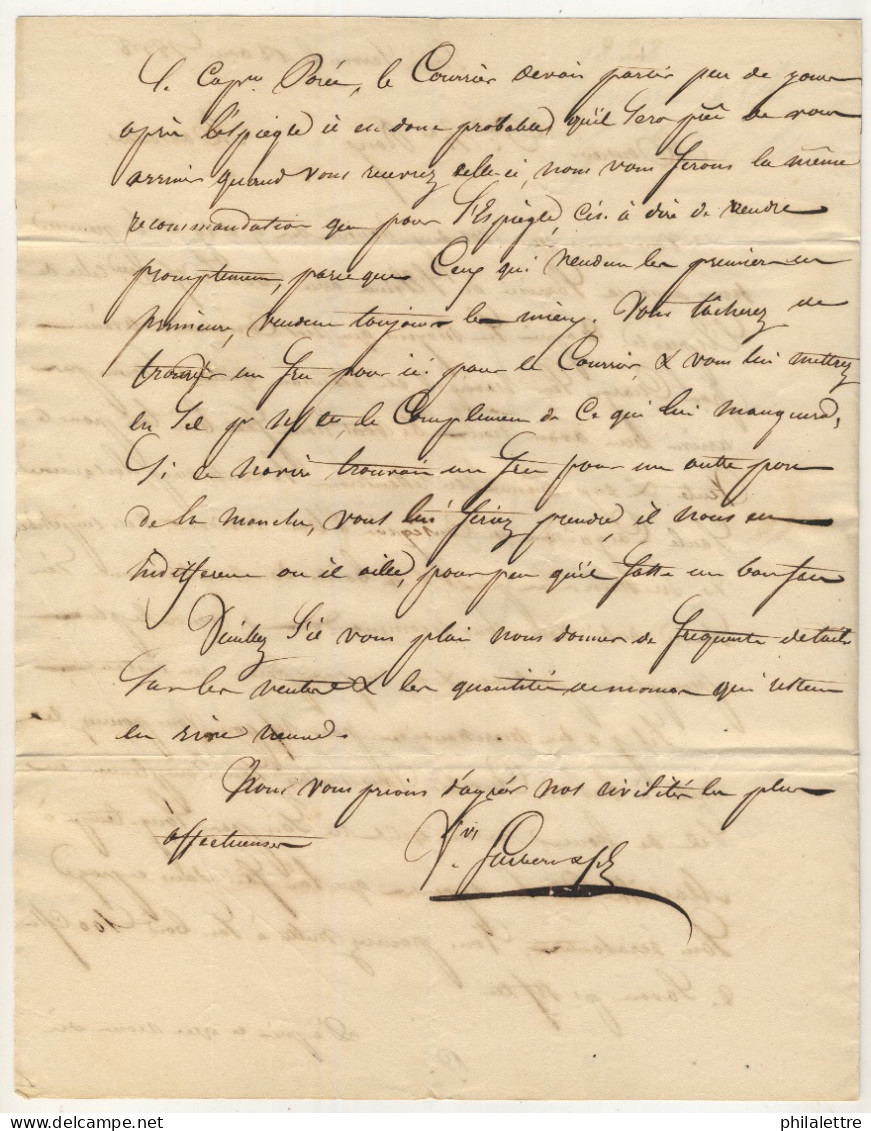 Capne Porée, le Courrier devait partir peu de jours
après l'Espiègle il est donc probable qu'il sera prêt de vous
arriver quand vous recevrez celle-ci, nous vous ferons la même
recommandation que pour l'Espiègle, c'est à dire de vendre
promptement, parce que Ceux qui vendent les premiers en
primeure, vendent toujours le mieux. Vous tâcherez de
trouver un fret pour ici pour le Courrier, & vous lui mettrez
en Sel le Complément de Ce qui lui manquera,
Si ce navire trouvait un fret pour un autre port
de la manche, vous lui feriez prendre, il nous est
indifférent ou il aille, pour peu qu'il fasse un bon fret
Veuillez s'il vous plait nous donner de fréquents détails
sur les ventes & les quantités de morue qui restent
en
Nous vous prions d'agréer nos civilités les plus
affectueuses
philalettre